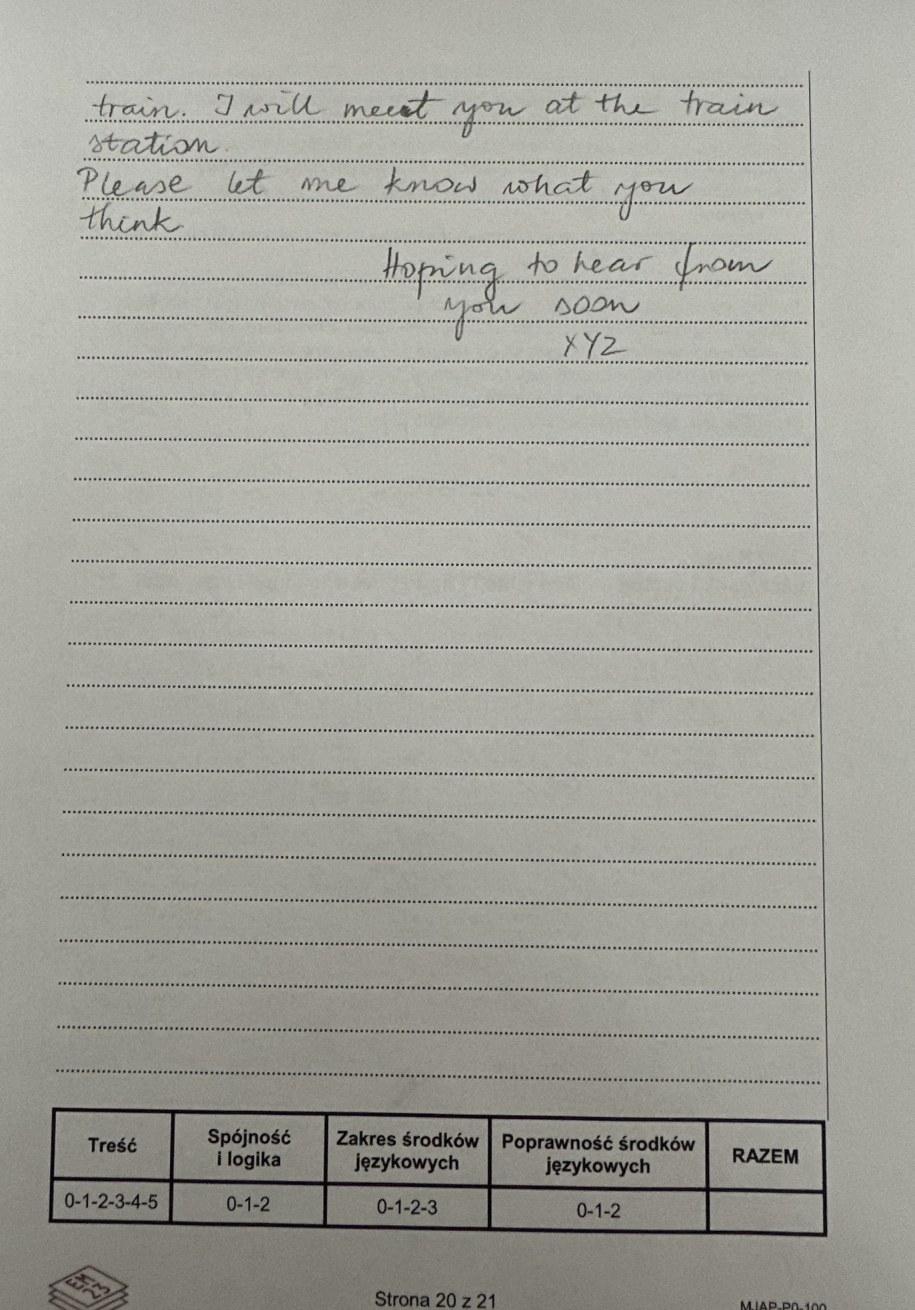 train. I will meet you at the train
station.
Please let me know what you
think.
Hoping to hear from
you soon
XYZ
Treść
Spójność
i logika
Zakres środków
językowych
Poprawność środków
językowych
RAZEM
0-1-2-3-4-5
0-1-2
0-1-2-3
0-1-2
Strona 20 z 21
MJAP-P0-100